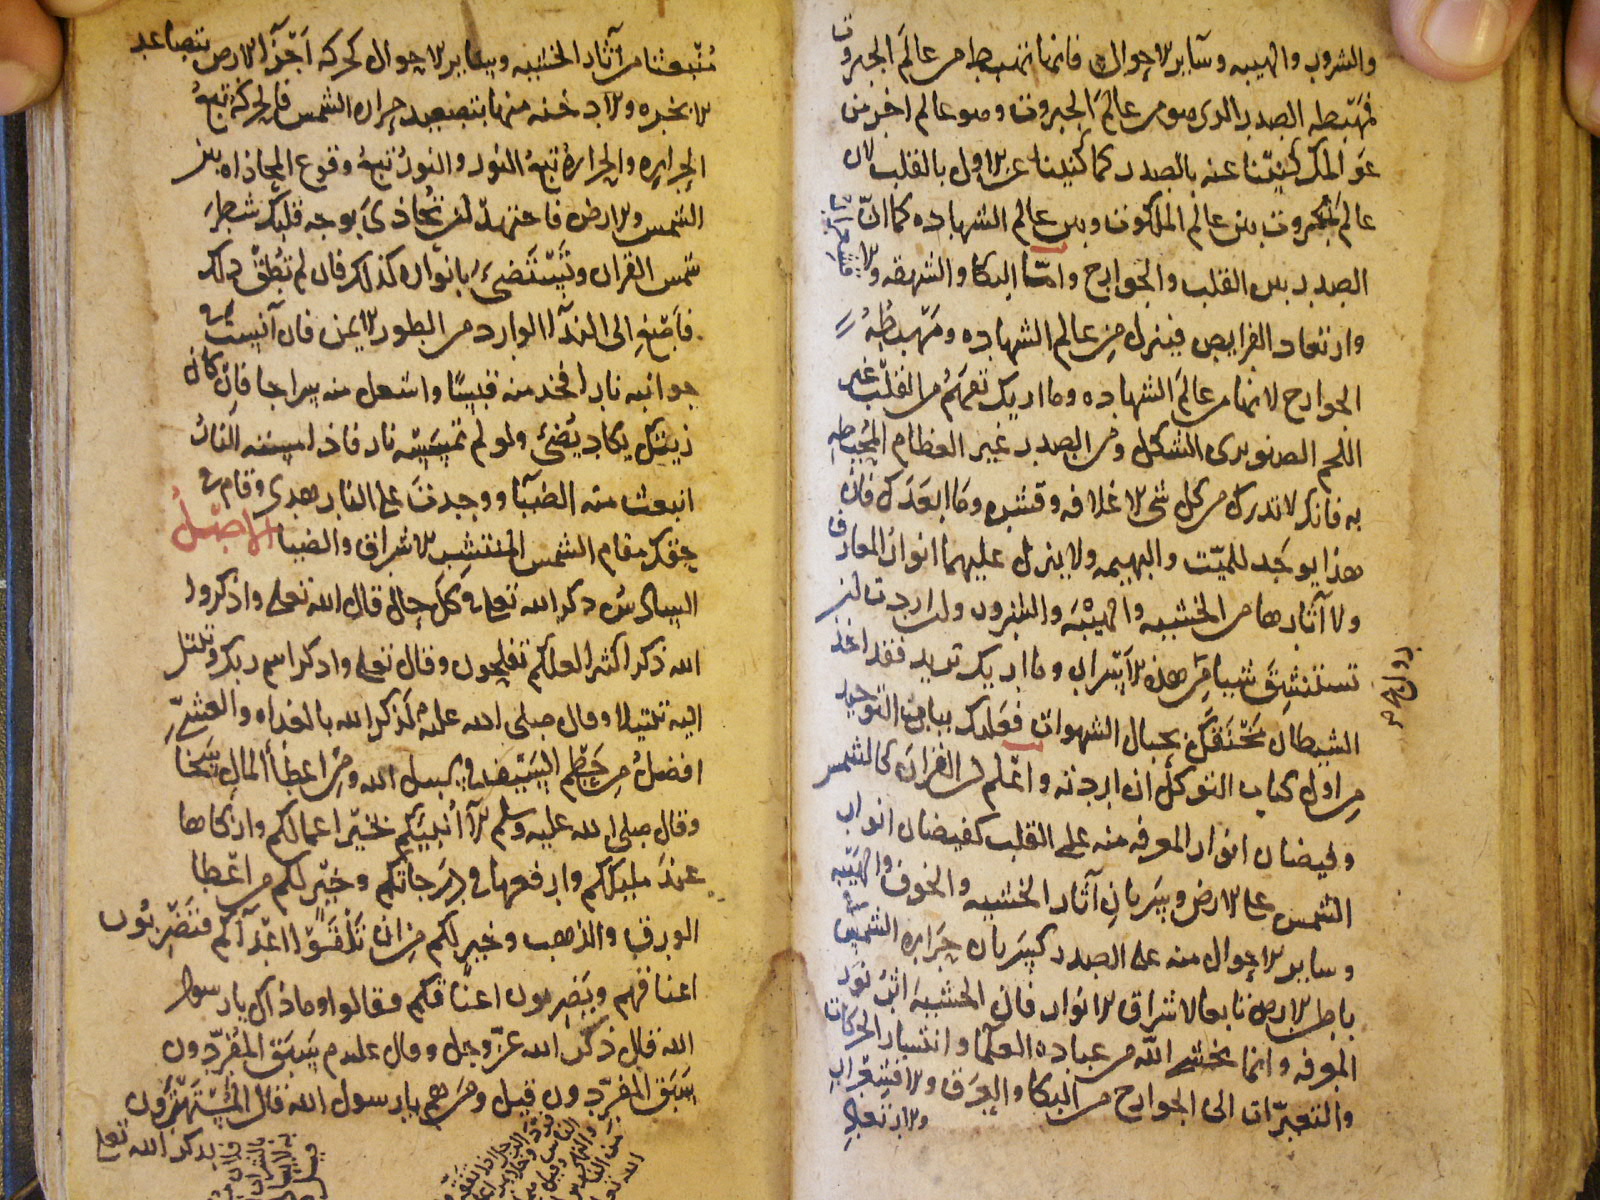 والسرور والهيبه وسآير الاحوال فانما تهبط من عالَم الجبروت
فمَهْبطه الصدر الذى هو من عالَم الجبروت وهو عالم اخر من
عوالمك كنّيْنا عنه بالصدر كما كنينا عن الاول بالقلب لان
عالَم الجبروت بين عالم الملكوت وبين عالم الشهاده كما انّ
الصدر بين القلب والجوارح وامّا البكا والشهقه والاقشعرار
وارتعاد الفرايص فينزل من عالم الشهاده ومَهْبطُهُ
الجوارح لانها من عالَم الشهاده وما اريك تفهَمُ من القلب غير
اللحم الصنوبرى الشكل ومن الصدر غير العظام المُحيطه
به فانك لا تدرك من كل شى الا غلافه وقشره وما ابعَدَك فان
هذا يوجَد للميّت والبهيمه ولا ينزل عليهما انوار المعارف
ولا آثارها من الخشيه والهيْبَه والسرور ولن اردت ان
تستنشِقَ شيا من هذه الاَسرار وما اريك تريد فقد اخذ
الشيطان مُخْتنقَكَ بحبال الشهوات فعَليك بباب التوحيد
من اول كتاب التوكل ان اردته واعْلم ان القرآن كالشمس
وفيضان انوار المعرفه منه على القلب كفيضان انوار
الشمس على الارض وسَريان آثار الخشيه والخوف والهَيْبَه
وساير الاحوال منه على الصدر كسَريان حَراره الشمس
باطن الارض تابعا لاشراق الانوار فان الخشيه اثر نور
المعرفه وانما يخشى اللّه من عباده العلما وانتشار الحركات
والتغيّرات الى الجوارح من البكا والعرق والاقشعرار
والارتعاد
مُنْبعِثا من آثار الخشيه وساير الاحوال كحركه اَجْزآ الارض بتصاعد
الابخره والادخنه منها بتصعيد حراره الشمس فالحركة تبعُ
الحراره والحرارهُ تبعُ النور والنورُ تبعُ وقوع المحاذاه بين
الشمس والارض فاجتهد ان تُحاذىَ بوجه قلبك شطرَ
شمس القران وتَسْتَضىَ بانواره كذلك فان لم تُطِقْ ذلك
فاَصْغِ الى الندآ الوارد من الطور الايمن فان آنستَ من
جوانبه نارا فخذ منه قبسًا واشعل منه سراجا فاِن كان
زيتك يكاد يُضىء ولو لم تمسَسه نار فاذا مسته النارُ
انبعث منه الضيآ ووجدت على النار هدى وقام فى
حقك مقام الشمس المنتشر الاشراق والضيا الاصْلُ
السادسُ ذكر الله تعلى فى كلّ حال قال الله تعلى واذكروا
الله ذكرا كثيرا لعلكم تفلحون وقال تعلى واذكر اسم ربك وتبتل
اليه تبتيلا وقال صلى الله عليه لَذكر الله بالغداه والعَشِىِّ
افضلُ من حَطْم السَيْف فى سبيل الله ومِن اعطآ المال سَحًّا
وقال صلى الله عليه وسلم الآ اُنبيكم بخيْر اعمالكم وازكاها
عندَ مليككم وارفعها فى دَرَجاتكم وخَيْر لكم من اعْطا
الورِق والذهب وخير لكم من ان تَلْقَوْا اعْدآكم فتَضْرِبُون
اعناقهم ويَضرِبون اعناقكم فقالوا وما ذاك يا رسول
الله قال ذكر الله عزّ وجل وقال عليه سَبَق المُفَرّدون
سَبَق المُفرّدون قيل ومَن هم يا رسول الله قال المُسْتَهتَرُون
بذكر الله تعلى